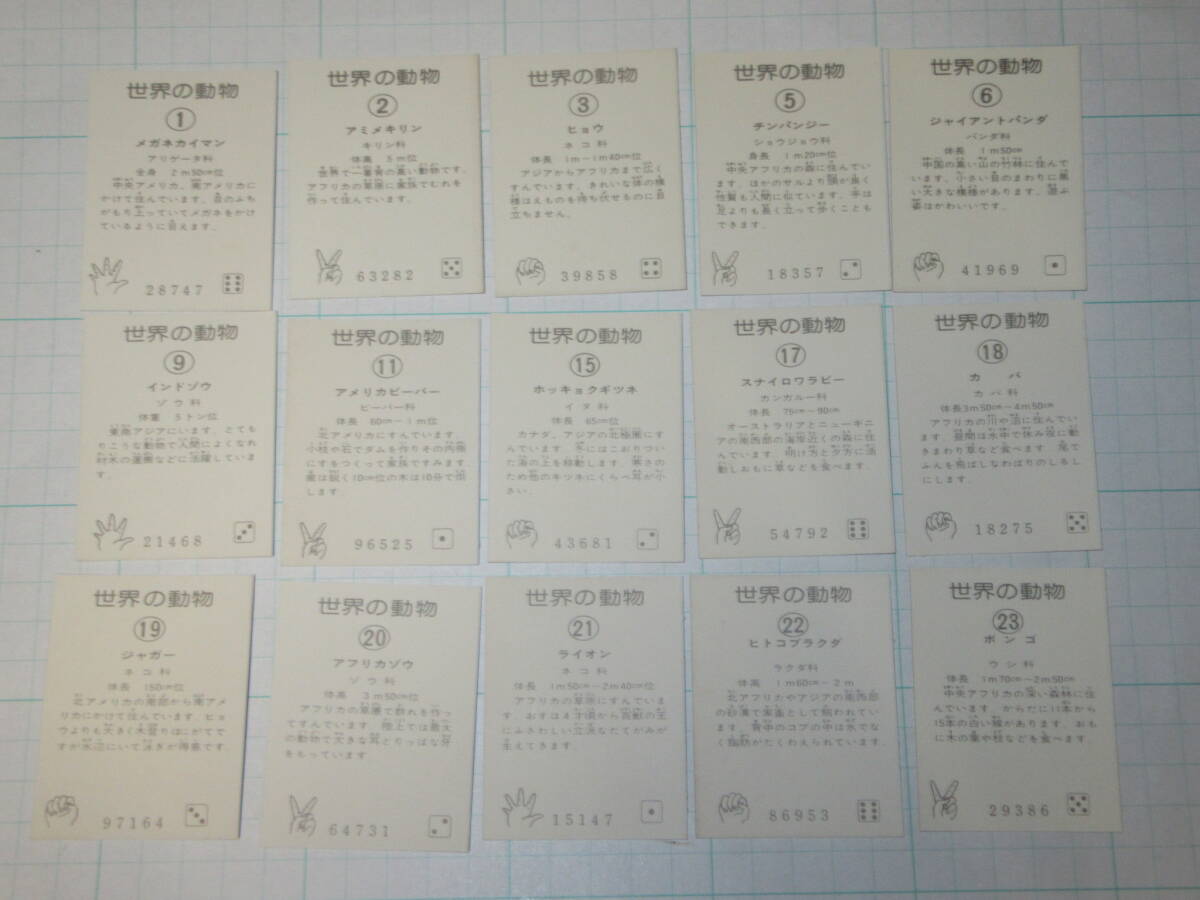 世界の動物
①
メガネカイマン
アリゲータ科
全身 2m50cm位
中央アメリカ、南アメリカに
かけて住んでいます。目のふち
がもり上っていてメガネをかけ
ているように見えます。
28747
世界の動物
②
アミメキリン
キリン科
体高 5m位
世界で一番背の高い動物です。
アフリカの草原に家族でむれを
作って住んでいます。
63282
世界の動物
③
ヒョウ
ネコ科
体長 1m〜1m40cm位
アジアからアフリカまで広く
すんでいます。きれいな体の模
様はえものを待ち伏せるのに目
立ちません。
39858
世界の動物
⑤
チンパンジー
ショウジョウ科
身長 1m20cm位
中央アフリカの森に住んでい
ます。ほかのサルより頭が良く
性質も人間に似ています。手は
足よりも長く立って歩くことも
できます。
18357
世界の動物
⑥
ジャイアントパンダ
パンダ科
体長 1m50cm
中国の高い山の竹林に住んで
います。小さい目のまわりに黒
い大きな模様があります。遊ぶ
姿はかわいいです。
41969
世界の動物
⑨
インドゾウ
ゾウ科
体重 5トン位
東南アジアにいます。とても
りこうな動物で人間によくなれ
材木の運搬などに活躍していま
す。
21468
世界の動物
⑪
アメリカビーバー
ビーバー科
体長 60cm〜1m位
北アメリカにすんでいます。
小枝や石でダムを作りその内側
にすをつくって家族ですみます。
歯は鋭く10cm位の木は10分で倒
します。
96525
世界の動物
⑮
ホッキョクギツネ
イヌ科
体長 65cm位
カナダ、アジアの北極圏にす
んでいます。冬にはこおりつい
た海の上を移動します。寒さの
ため他のキツネにくらべ耳が小
さい。
43681
世界の動物
⑰
スナイロワラビー
カンガルー科
体長 75cm〜90cm
オーストラリアとニューギニ
アの南西部の海岸近くの森に住
んでいます。明け方と夕方に活
動しおもに草などを食べます。
54792
世界の動物
⑱
カバ
カバ科
体長3m50cm〜4m50cm
アフリカの川や沼に住んでい
ます。昼間は水中で休み夜に動
きまわり草など食べます。尾で
ふんを飛ばしなわばりのしるし
にします。
18275
世界の動物
⑲
ジャガー
ネコ科
体長 150cm位
北アメリカの南部から南アメ
リカにかけて住んでいます。ヒョ
ウよりも大きく木登りはにがてで
すが水辺にいて泳ぎが得意です.
97164
世界の動物
⑳
アフリカゾウ
ゾウ科
体高 3m50cm位
アフリカの草原で群れを作っ
てすんでいます。陸上では最大
の動物で大きな耳とりっぱな牙
をもっています
64731
世界の動物
㉑
ライオン
ネコ科
体長 1m50cm〜2m40cm位
アフリカの草原にすんでいま
す。おすは4才頃から百獣の王
にふさわしい立派なたてがみが
生えてきます。
15147
世界の動物
㉒
ヒトコブラクダ
ラクダ科
体高 1m60cm〜2m
北アフリカやアジアの南西部
の砂漠で家畜として飼われてい
ます。背中のコブの中は水でな
く脂肪がたくわえられています。
86953
世界の動物
㉓
ボンゴ
ウシ科
体長 1m70cm〜2m50cm
中央アフリカの深い森林に住
んでいます。からだに11本から
15本の白い縞があります。おも
に木の葉や枝などを食べます。
29386